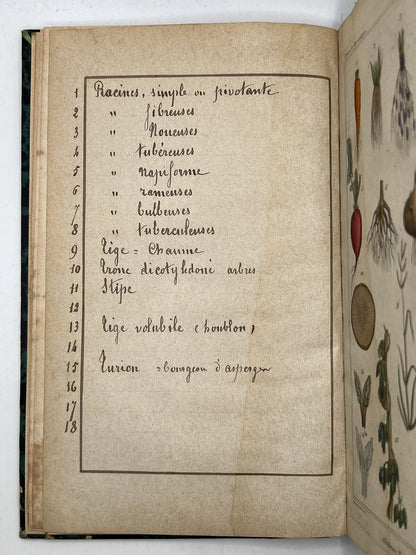 1 Racines, simple ou pivotante
2 " fibreuses
3 " Noueuses
4 " tubéreuses
5 " Napiforme
6 " rameuses
7 " bulbeuses
8 " tuberculeuses
9 Tige = Chaume
10 Tronc dicotylédoné arbres
11 Stipe
12
13 Tige volubile (houblon)
14
15 Turion = bourgeon d'asperges
16
17
18